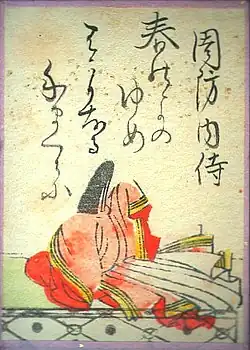 周防内侍
春のよの
ゆめ
はかりなる
手まくらに